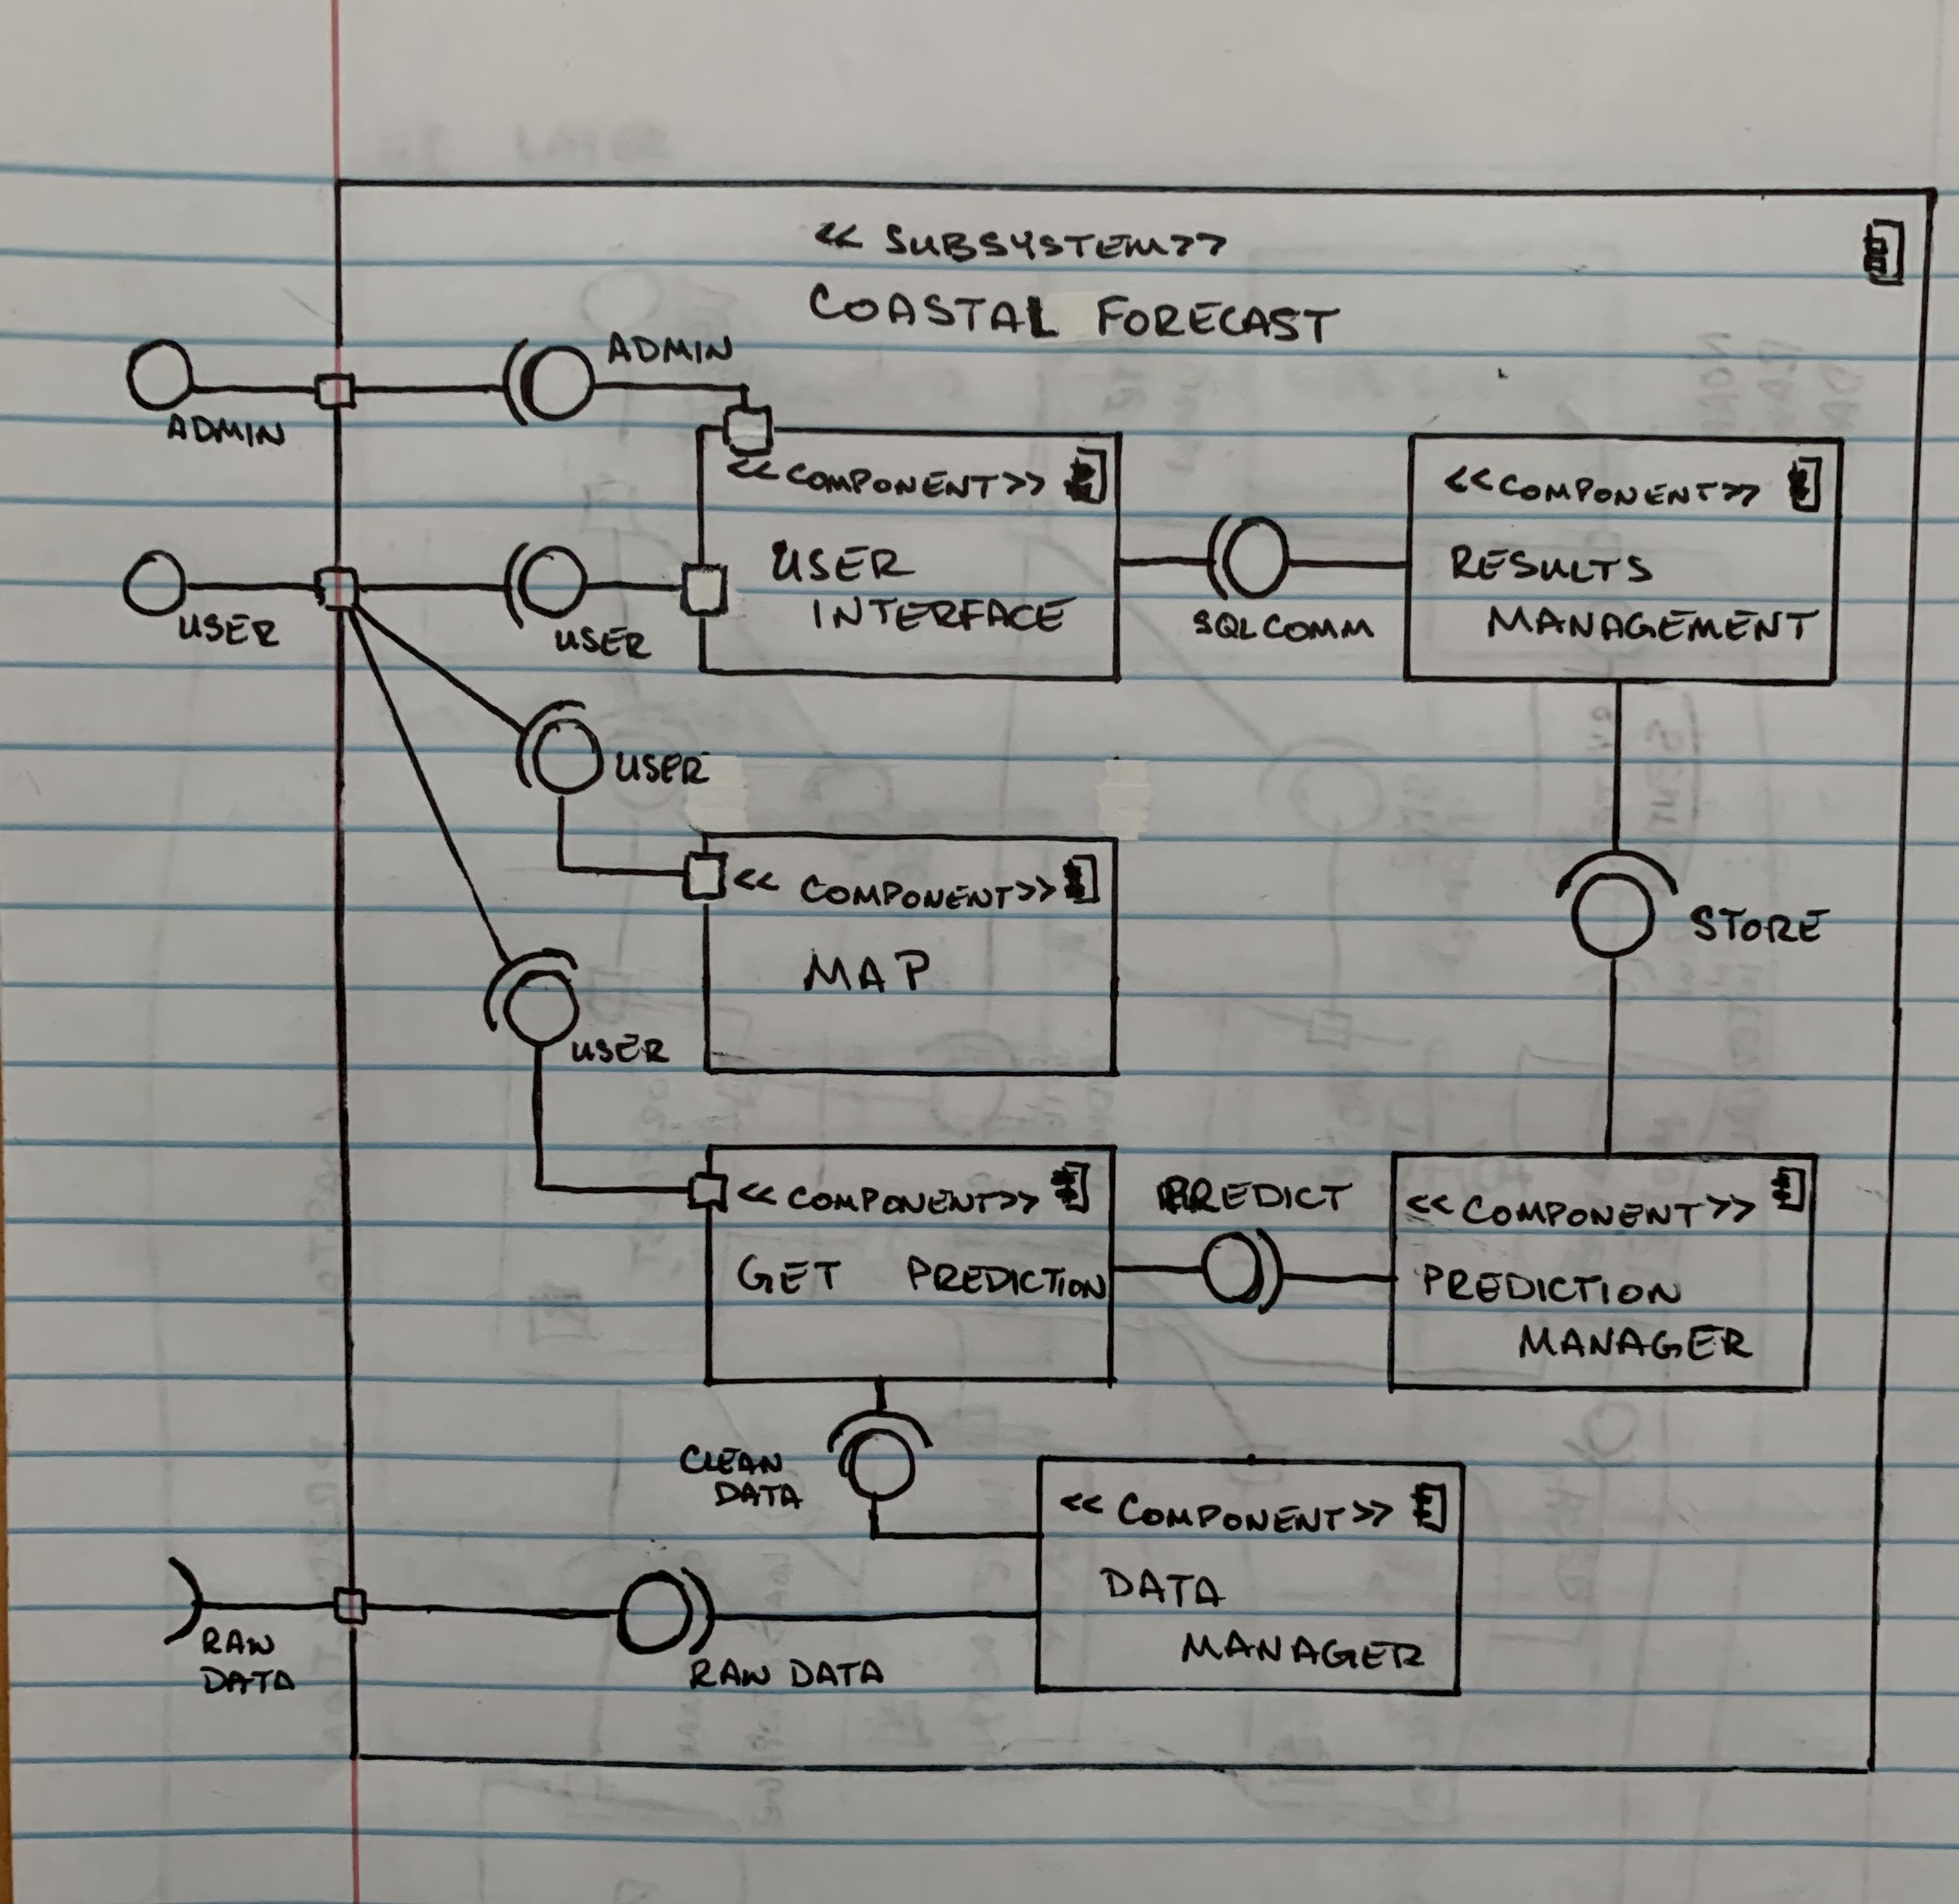 << SUBSYSTEM>>
COASTAL FORECAST
ADMIN
ADMIN
<<COMPONENT>>
USER
INTERFACE
<<COMPONENT>>
RESULTS
MANAGEMENT
SQLCOMM
USER
USER
USER
<< COMPONENT>>
MAP
STORE
USER
<< COMPONENT>>
GET PREDICTION
PREDICT
<< COMPONENT>>
PREDICTION
MANAGER
CLEAN
DATA
<< COMPONENT>>
DATA
MANAGER
RAW
DATA
RAW DATA